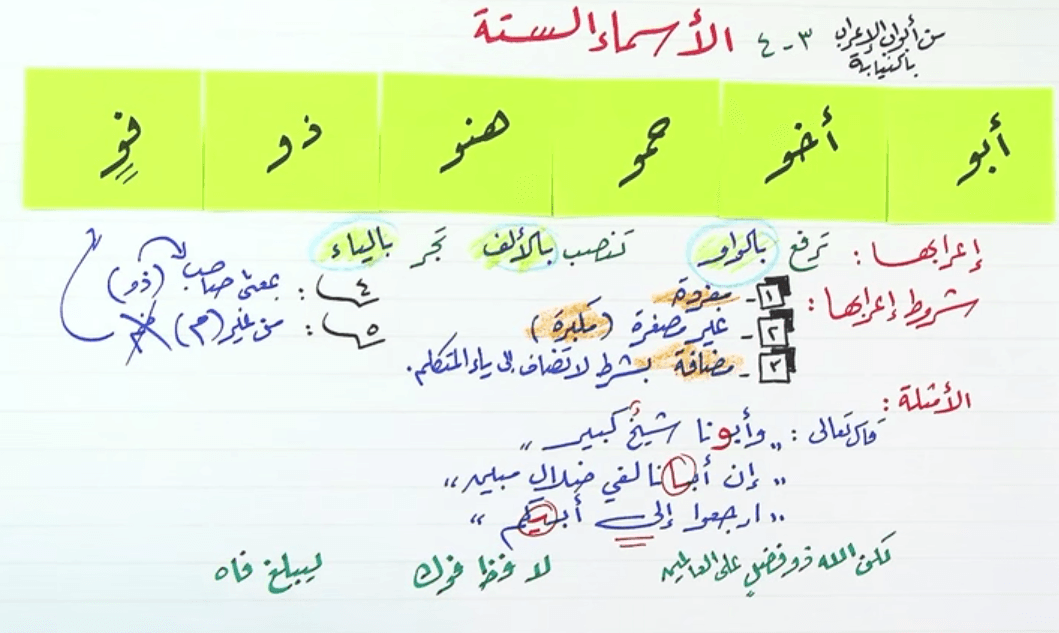 من أبواب الإعراب بالنيابة
٣-٤ الأسماء الستة
أبو أخو حمو هنو ذو فو
إعرابها: ترفع بالواو تنصب بالألف تجر بالياء
شروط إعرابها:
١- مفردة
٢- غير مصغرة (مكبرة)
٣- مضافة بشرط لا تضاف إلى ياء المتكلم.
٤: بمعنى صاحب (ذو)
٥: من غير (م) فم
الأمثلة:
قال تعالى: "وأبونا شيخٌ كبير"
"إن أبانا لفي ضلال مبين"
"ارجعوا إلى أبيكم"
لكن الله ذو فضلٍ على العالمين
لا فظ فوك
ليبلغ فاه